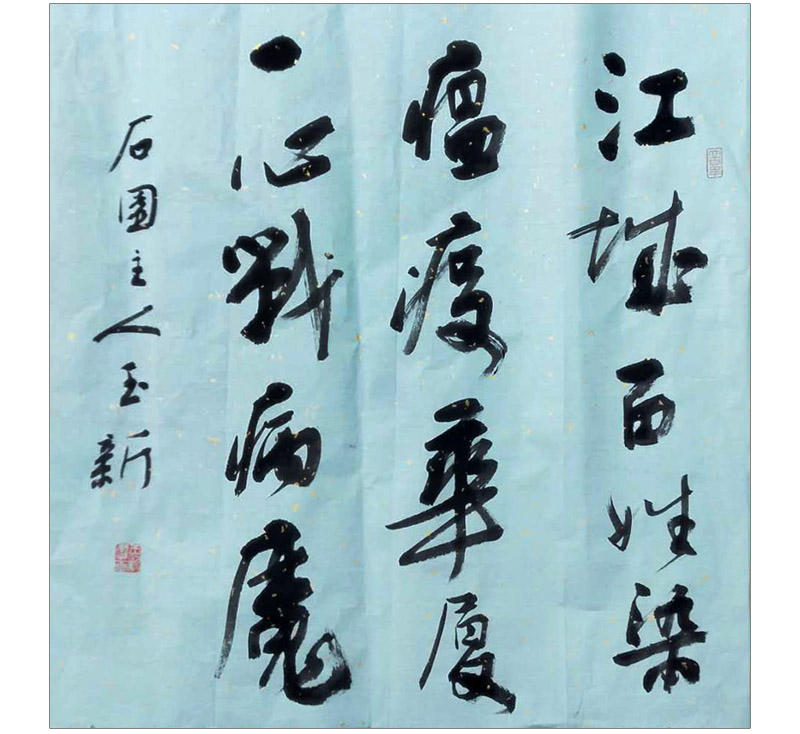 江城百姓染
瘟疫華厦
一心戰病魔
石園主人玉新